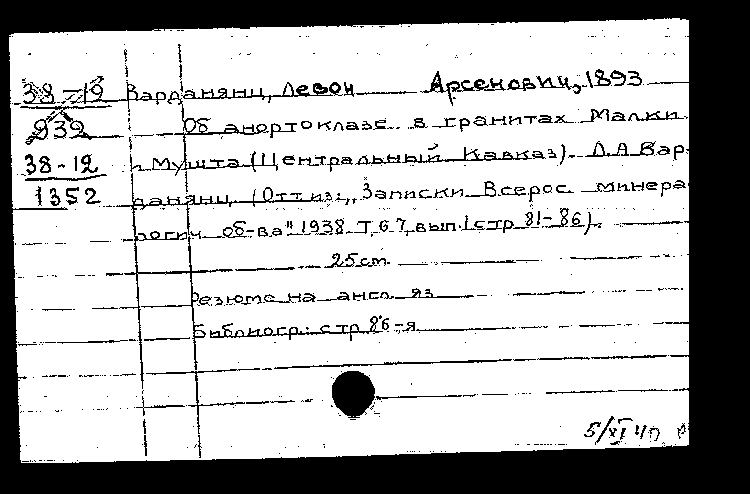 38-19 Варданянц, Левон Арсенович, 1893
939 Об анортоклазе в гранитах Малки
38-12 и Мушта (Центральный Кавказ). Л.А Вар-
1352 данянц (Отт из: „Записки Всерос. минера
логич об-ва" 1938 Т, 67, вып.1 стр 81-86).
25 cm
Резюме на англ яз
Библиогр: стр 86-я
5/XI 40